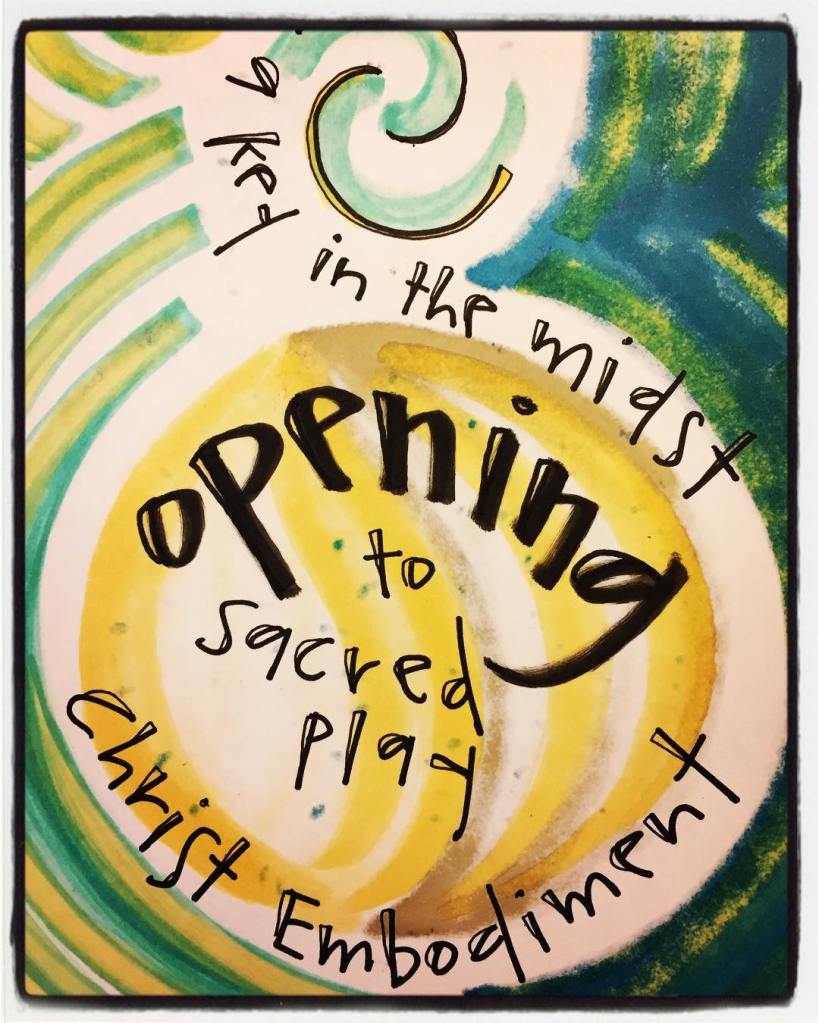 a key in the midst
opening
to
sacred
play
Christ Embodiment